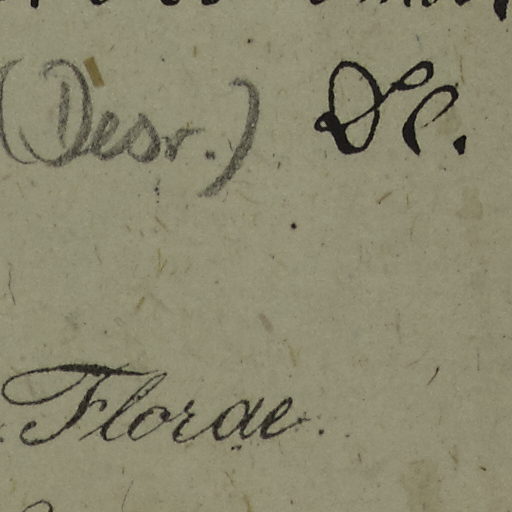 (Desr.) DC.
Florae.